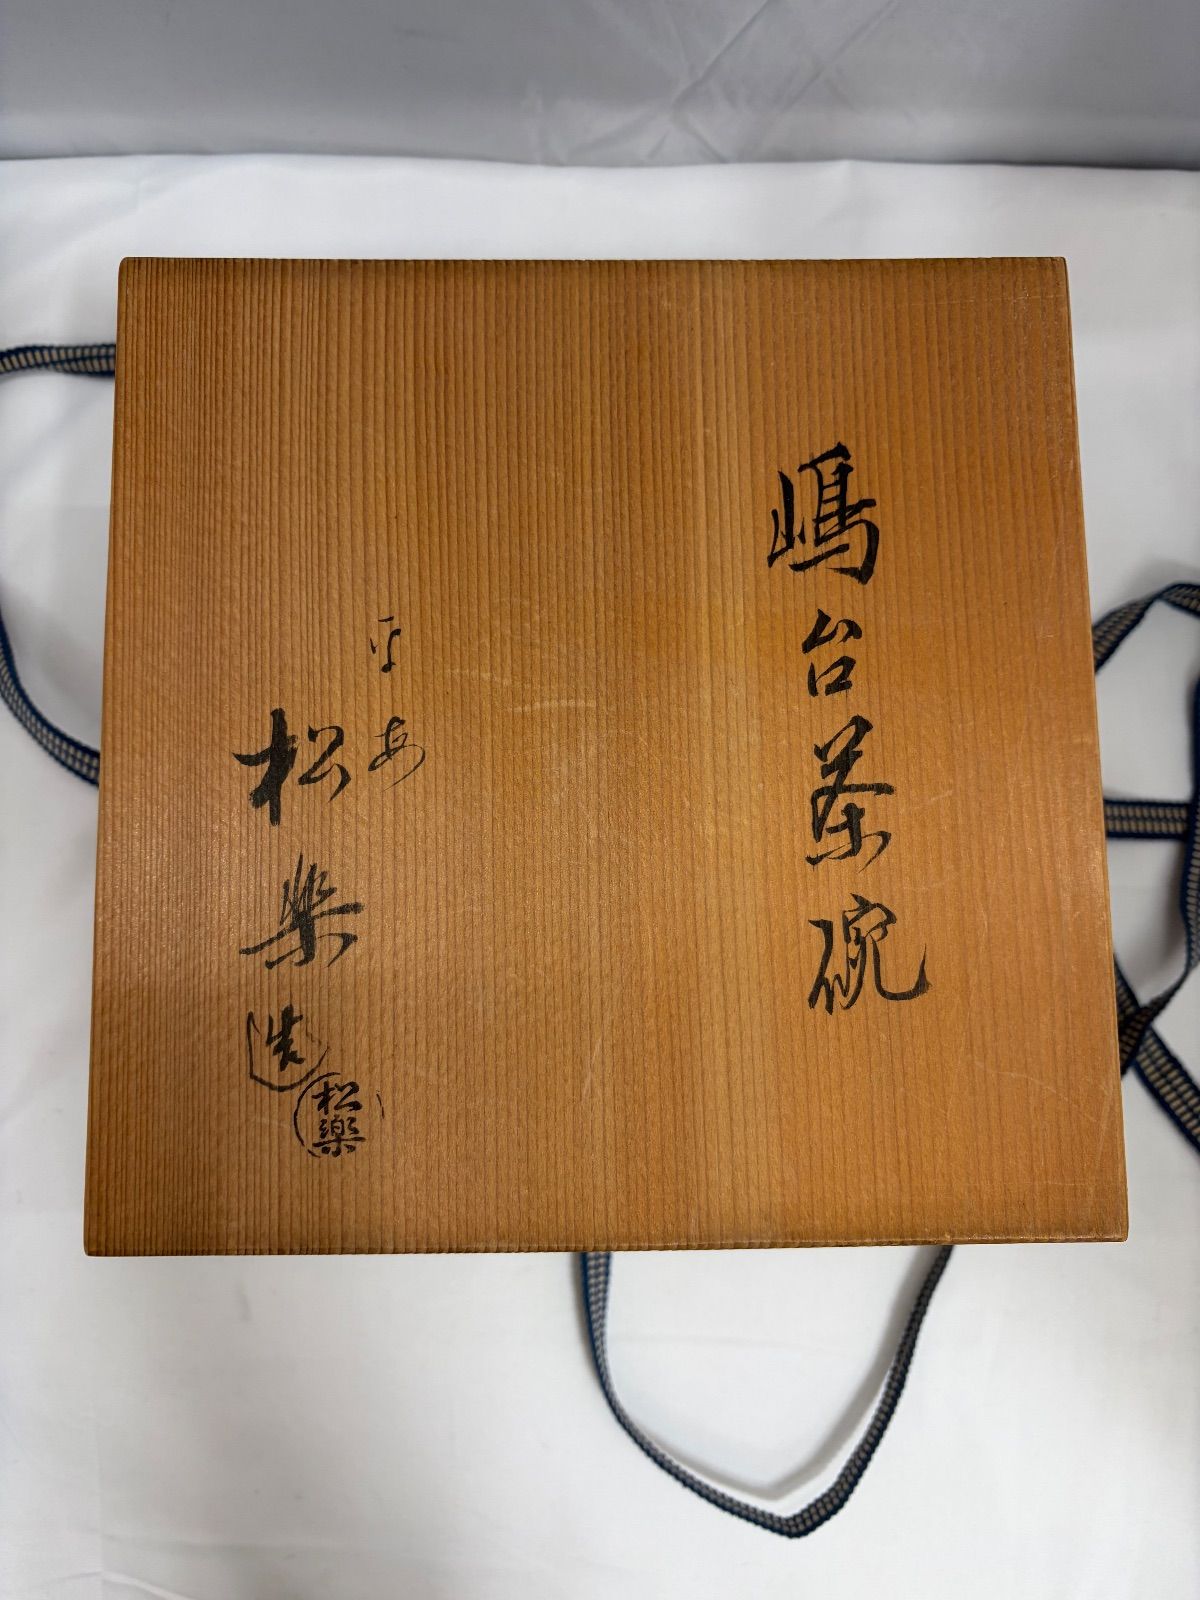 嶋台茶碗
平安
松楽造
松樂